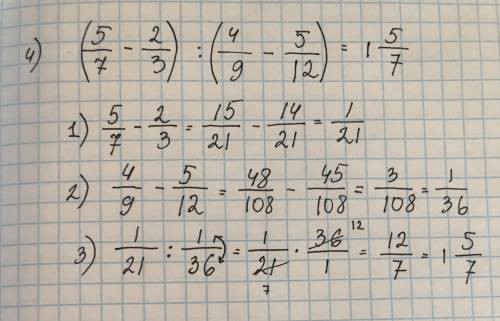 4) (5/7 - 2/3) : (4/9 - 5/12) = 1 5/7
1) 5/7 - 2/3 = 15/21 - 14/21 = 1/21
2) 4/9 - 5/12 = 48/108 - 45/108 = 3/108 = 1/36
3) 1/21 : 1/36 = 1/21 7 · 36 12/1 = 12/7 = 1 5/7